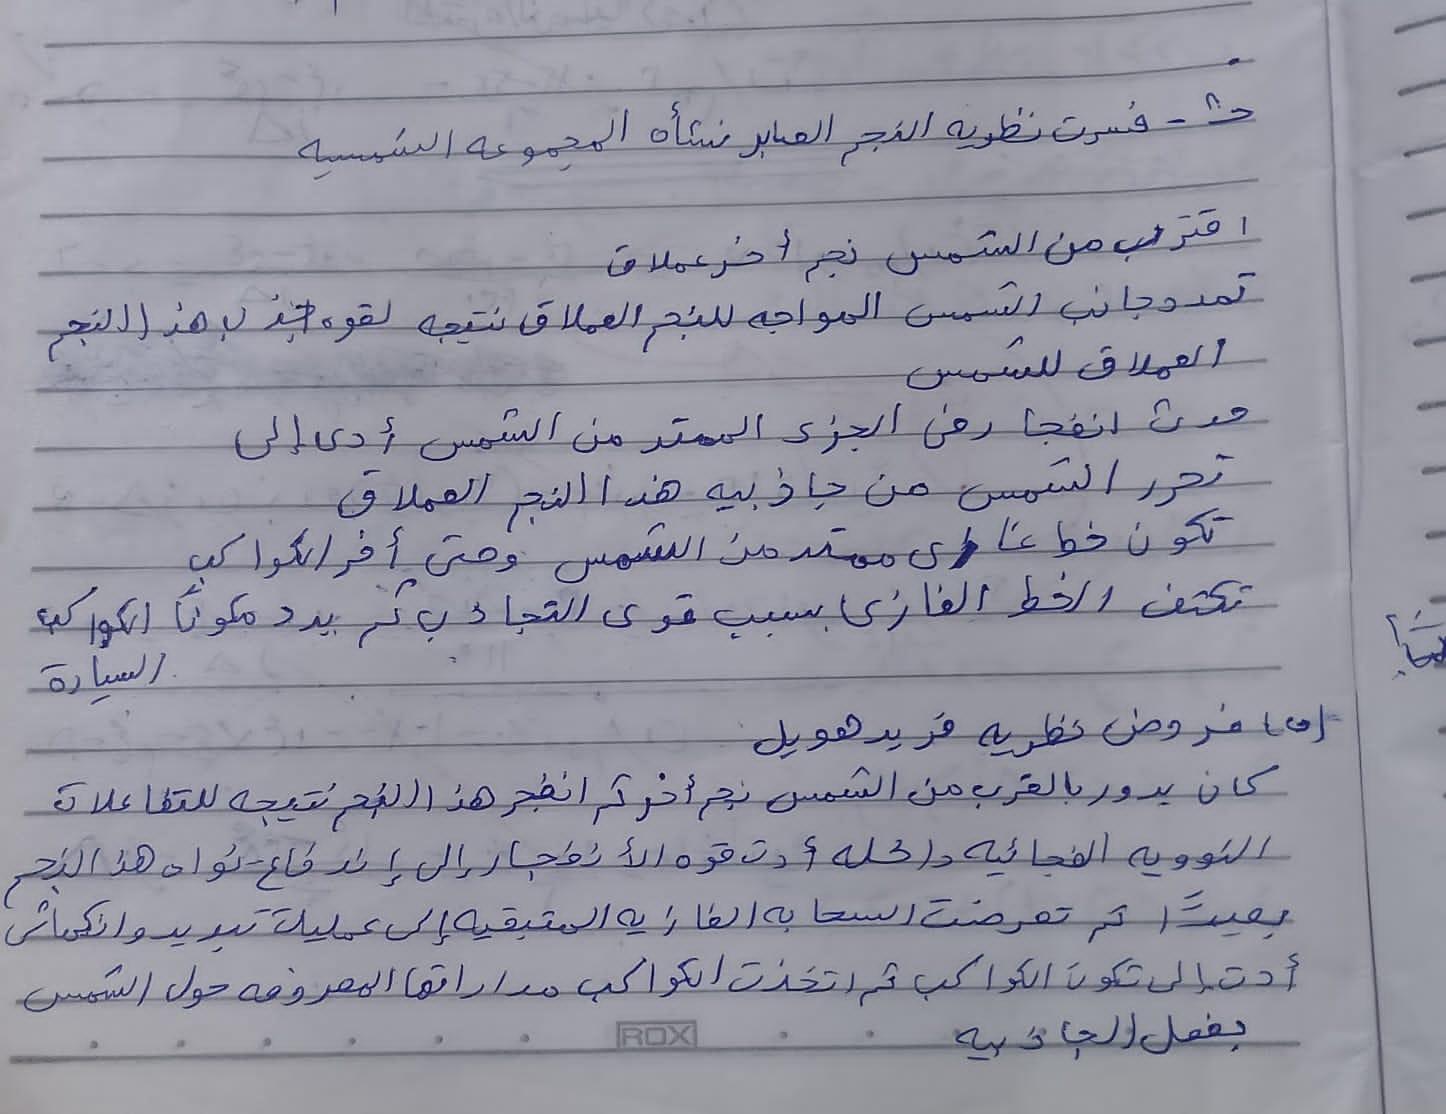 فسرت نظريه النجم العابر نشأه المجموعه الشمسيه
اقترب من الشمس نجم أخر عملاق
تمدد جانب الشمس المواجه للنجم العملاق نتيجه لقوه جذب هذا النجم
العملاق للشمس
حدث انفجار فى الجزء الممتد من الشمس أدى إلى
تحرر الشمس من جاذبيه هذا النجم العملاق
تكون خط غازى ممتد من الشمس وحتى أخر الكواكب
تكثف الخط الغازى بسبب قوى التجاذب ثم يبرد مكونًا الكواكب
السيارة
فروض نظريه فريد هويل
كان يدور بالقرب من الشمس نجم أخر ثم انفجر هذا النجم نتيجه للتفاعلات
النوويه الفجائيه داخله أدت قوه الأنفجار إلى إندفاع نواه هذا النجم
بعيدًا ثم تعرضت السحابه الغازيه المتبقيه إلى عمليات تبريد وانكماش
أدت إلى تكون الكواكب ثم اتخذت الكواكب مداراتها المعروفه حول الشمس
بفعل الجاذبيه
ROX